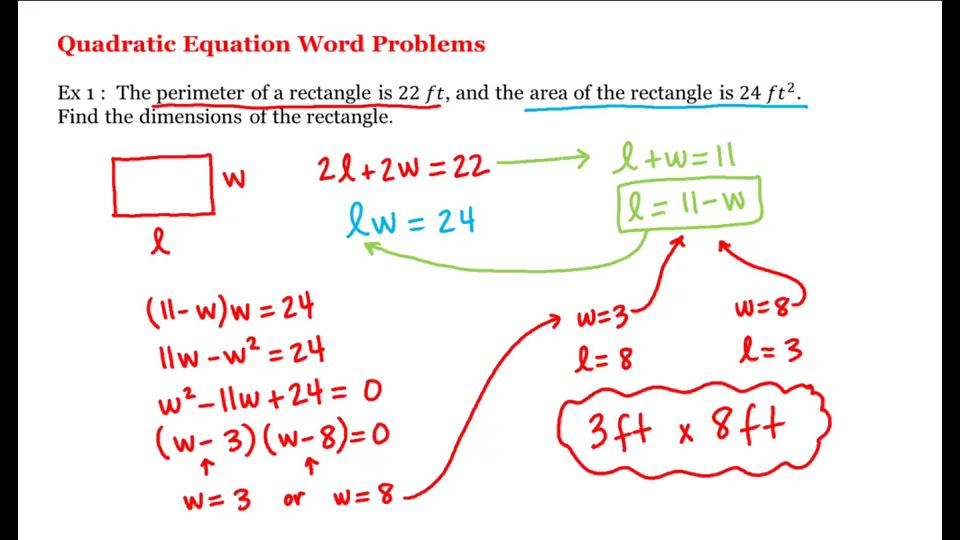 Quadratic Equation Word Problems
Ex 1 : The perimeter of a rectangle is 22 ft, and the area of the rectangle is 24 ft².
Find the dimensions of the rectangle.
w
l
2l + 2w = 22
l + w = 11
lw = 24
l = 11 - w
(11 - w)w = 24
11w - w² = 24
w² - 11w + 24 = 0
(w - 3)(w - 8) = 0
w = 3 or w = 8
w = 3
l = 8
w = 8
l = 3
3ft x 8ft